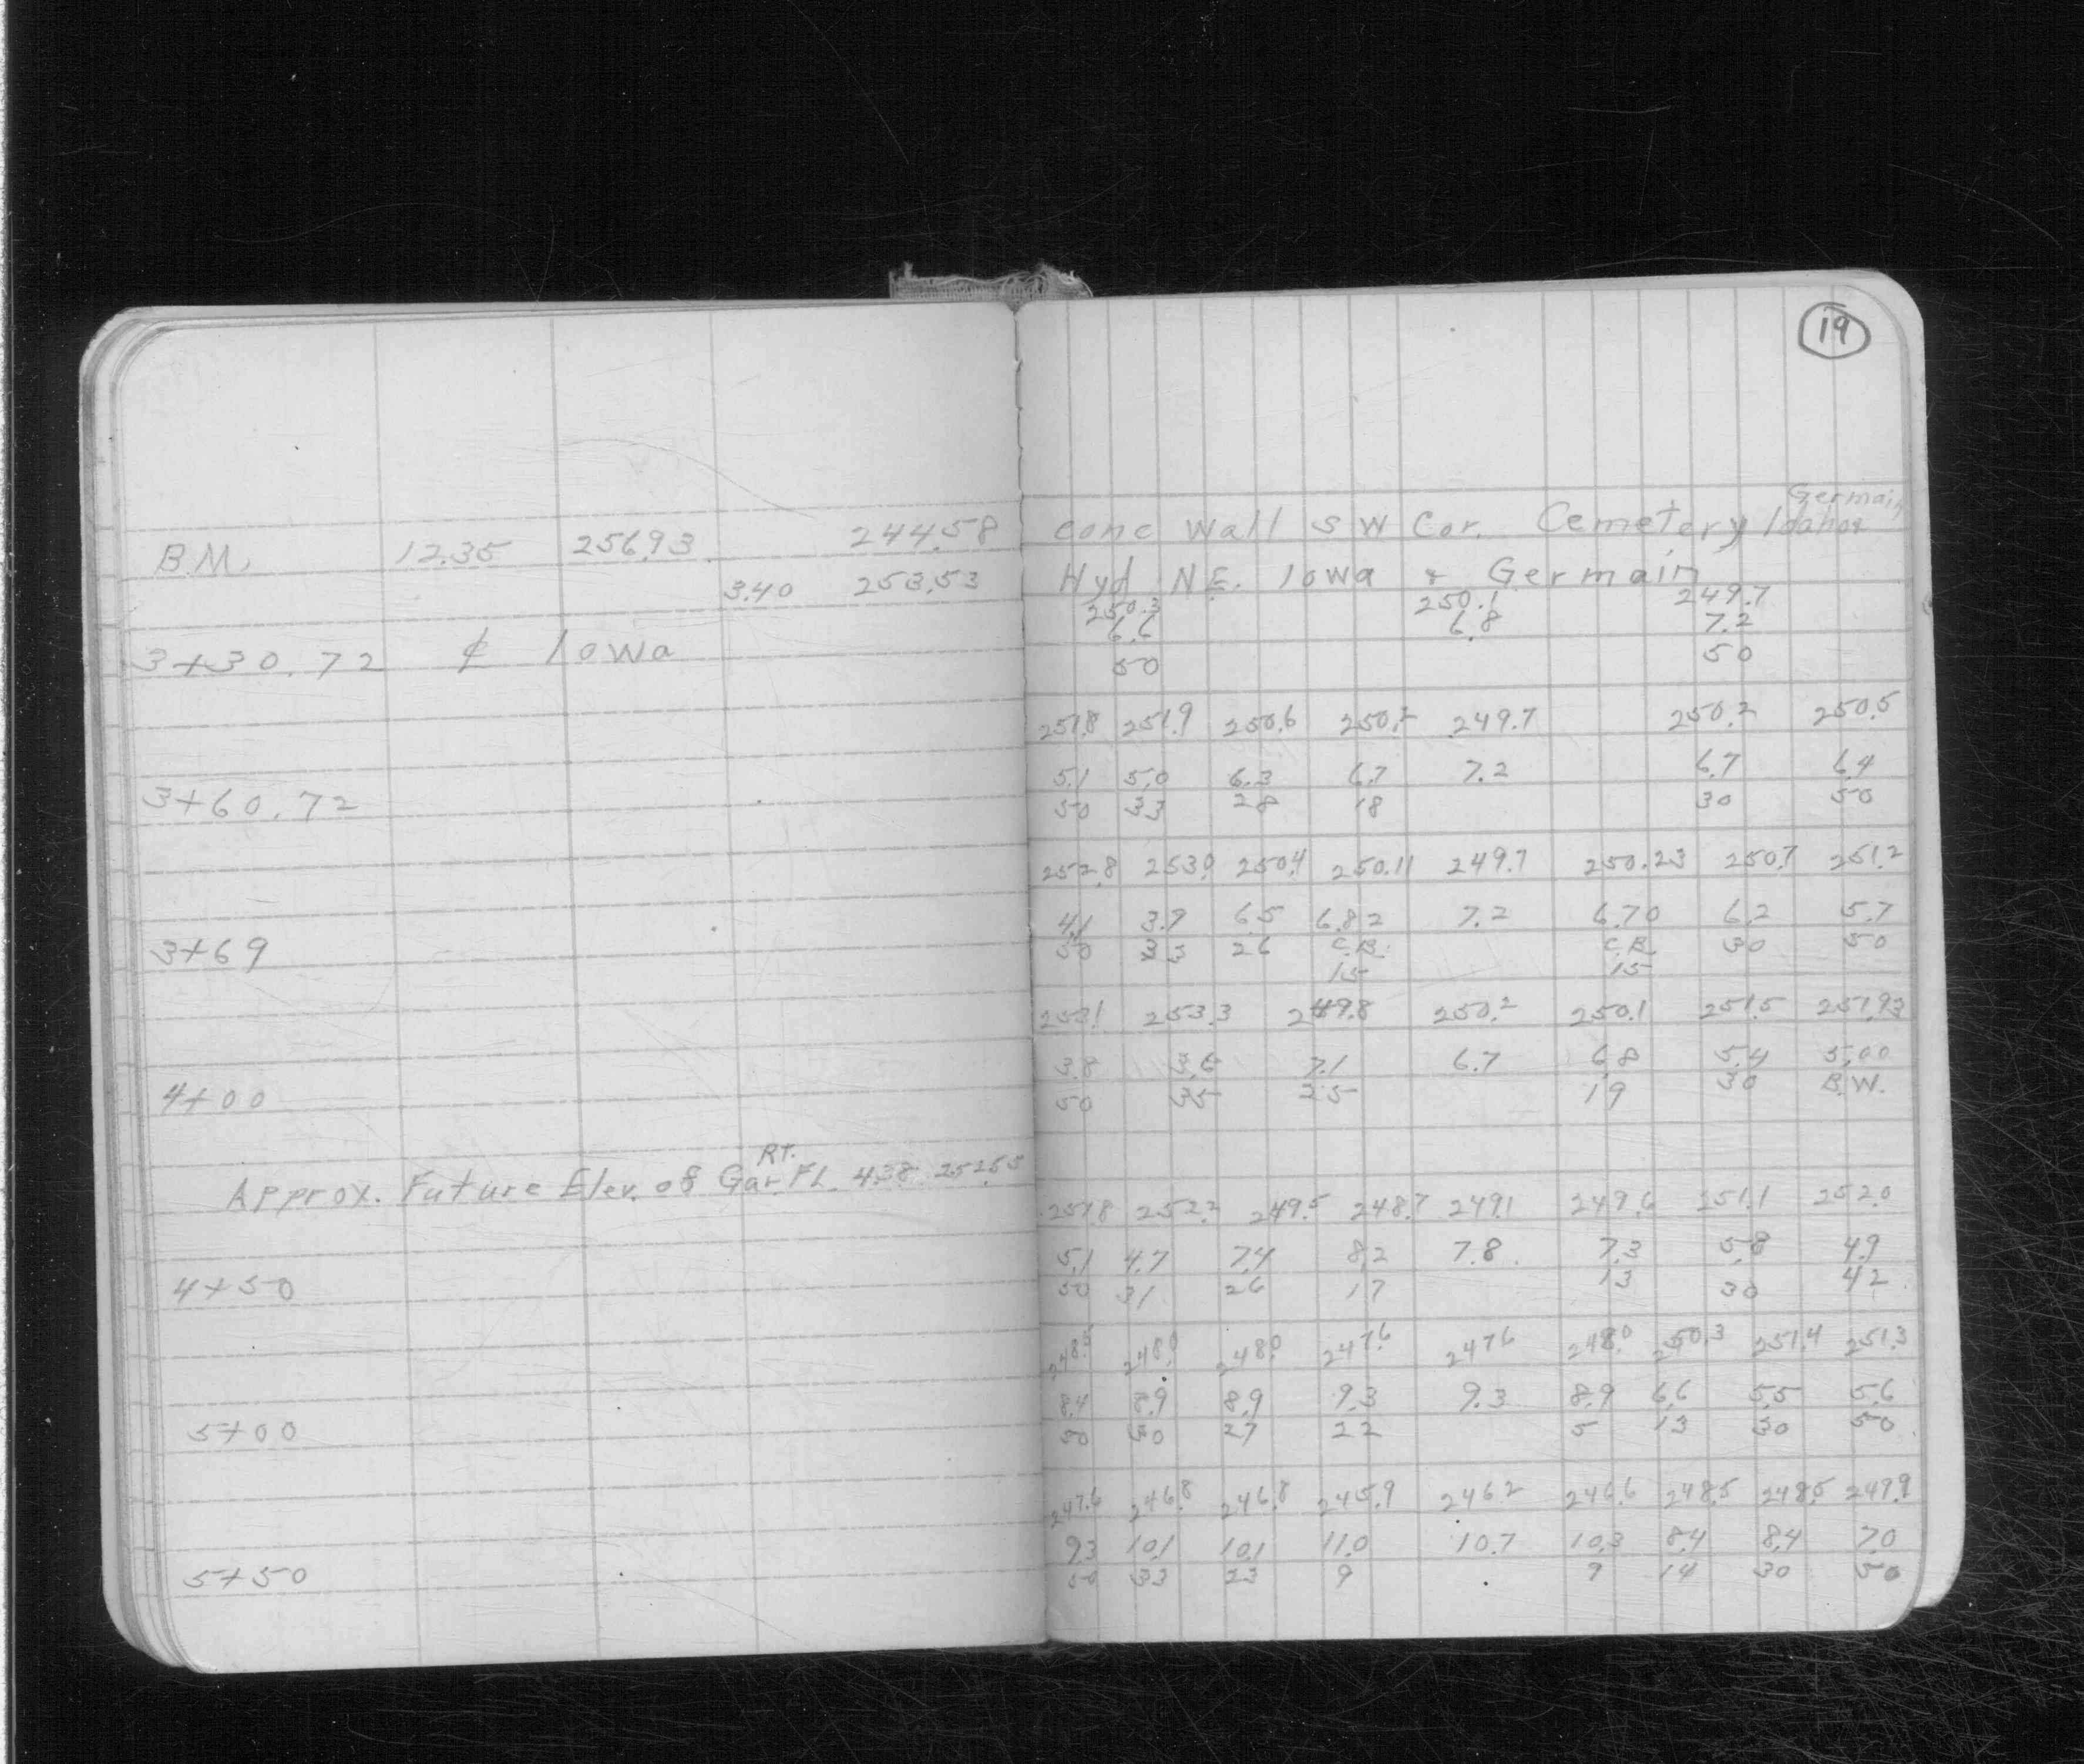 19
Germain
B.M. 12.35 256.93 244.58 conc wall S W Cor. Cemetery Idaho &
3.40 253.53 Hyd N.E. Iowa & Germain
250.3 250.1 249.7
6.6 6.8 7.2
3+30.72 ₵ Iowa 50 50
251.8 251.9 250.6 250.2 249.7 250.2 250.5
5.1 5.0 6.3 6.7 7.2 6.7 6.4
3+60.72 50 33 28 18 30 50
252.8 253.0 250.4 250.11 249.7 250.23 250.7 251.2
4.1 3.9 6.5 6.82 7.2 6.70 6.2 5.7
3+69 50 33 26 C.B. C.B. 30 50
15 15
253.1 253.3 249.8 250.2 250.1 251.5 251.93
3.8 3.6 7.1 6.7 6.8 5.4 5.00
4+00 50 35 25 19 30 B.W.
RT.
Approx. Future Elev. of Gar. FL. 4.38 252.55
251.8 252.2 249.5 248.7 249.1 249.6 251.1 252.0
5.1 4.7 7.4 8.2 7.8 7.3 5.8 4.9
4+50 50 31 26 17 13 30 42
248.5 248.0 248.0 247.6 247.6 248.0 250.3 251.4 251.3
8.4 8.9 8.9 9.3 9.3 8.9 6.6 5.5 5.6
5+00 50 30 27 22 5 13 30 50
247.6 246.8 246.8 245.9 246.2 246.6 248.5 248.5 249.9
9.3 10.1 10.1 11.0 10.7 10.3 8.4 8.4 7.0
5+50 50 33 23 9 9 14 30 50